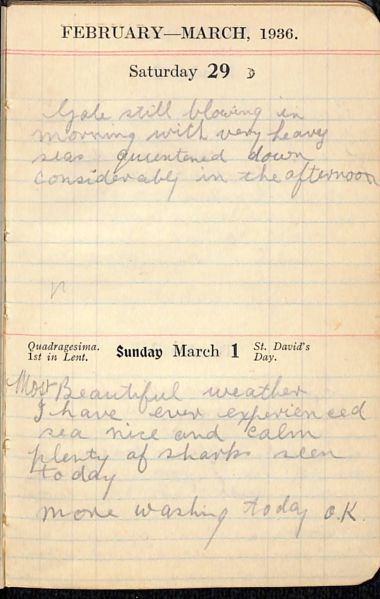 FEBRUARY—MARCH, 1936.
Saturday 29
Gale still blowing in
morning with very heavy
seas quientened down
considerably in the afternoon
Quadragesima.
1st in Lent.
Sunday March 1
St. David's
Day.
Most Beautiful weather
I have ever experienced
sea nice and calm
plenty of sharks seen
today
more washing today O.K.